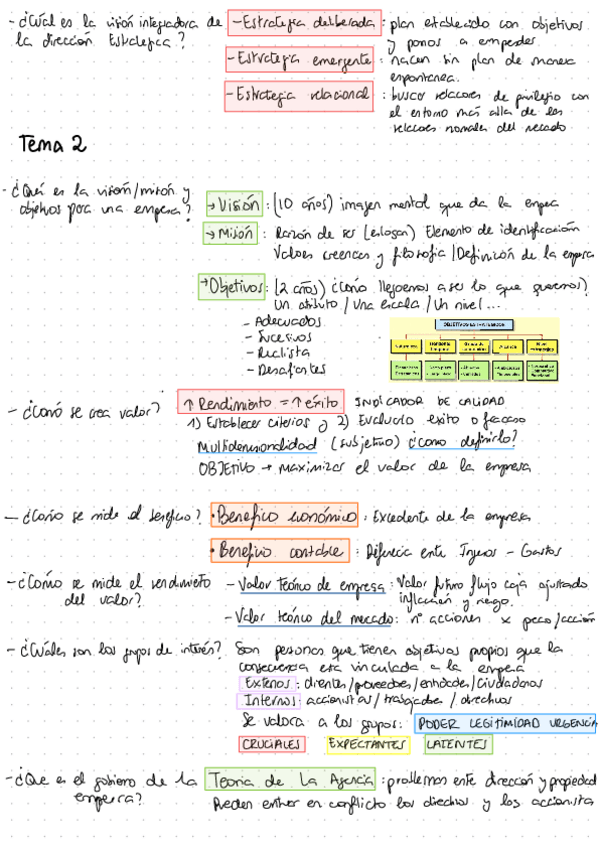 - ¿Cuál es la visión integradora de la dirección Estratégica?
- Estrategia deliberada : plan establecido con objetivos
y        a emprender
- Estrategia emergente : nacen sin plan de manera
espontanea.
- Estrategia relacional : busca relaciones de privilegio con
el entorno más alla de las
relaciones normales del mercado
Tema 2
- ¿Qué es la visión/misión y
objetivos para una empresa?
→ Visión : (10 años) imagen mental que da la empresa
→ Misión : Razón de ser (eslogan) Elemento de identificación
Valores creencias y filosofía / Definición de la empresa
→ Objetivos : (2 años) ¿Cómo llegaremos a ser lo que queremos?
Un atributo / Una escala / Un nivel ...
- Adecuados
- Sucesivos
- Realista
- Desafiantes
- ¿Cómo se crea valor?
↑ Rendimiento = ↑ éxito INDICADOR DE CALIDAD
1) Establecer criterios y 2) Evaluarlo éxito o fracaso
Multidimensionalidad (subjetivo) ¿como definirlo?
OBJETIVO → maximizar el valor de la empresa
- ¿Cómo se mide el beneficio?
• Beneficio económico : Excedente de la empresa
• Beneficio contable : Diferencia entre Ingresos - Gastos
- ¿Cómo se mide el rendimiento
del valor?
- Valor Teórico de empresa : Valor futuro flujo caja ajustado
inflación y riesgo.
- Valor teórico del mercado : nº acciones x precio/acción
- ¿Cuáles son los grupos de interés?
Son personas que tienen objetivos propios que la
consecuencia esta vinculada a la empresa
Externos : clientes / proveedores / entidades / ciudadanos
Internos : accionistas / trabajadores / directivos
Se valora a los grupos : PODER LEGITIMIDAD URGENCIA
CRUCIALES EXPECTANTES LATENTES
- ¿Que es el gobierno de la
empresa?
Teoria de La Agencia : problemas entre dirección y propiedad
Pueden entrar en conflicto los directivos y los accionista